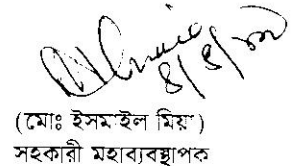 ৪/৪/২২
(মোঃ ইসমাইল মিয়া)
সহকারী মহাব্যবস্থাপক